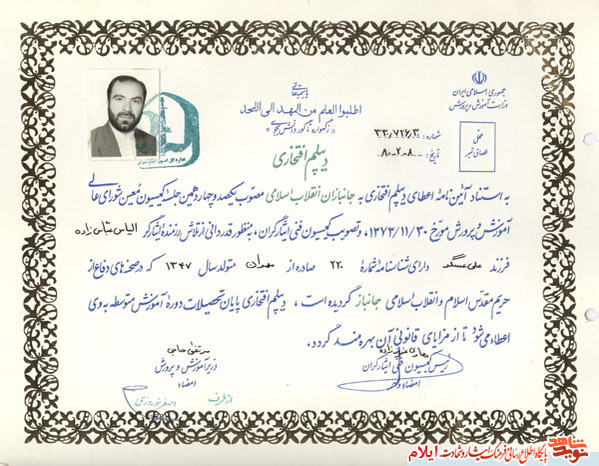 باسمه تعالی
اطلبوا العلم من المهد الی اللحد
زگهواره تا گور دانش بجوی
جمهوری اسلامی ایران
وزارت آموزش و پرورش
شماره: ۳۳۰۷۲۶۳
تاریخ: ۸۰-۲-۸
محل
الصاق تمبر
دیپلم افتخاری
به استناد آئین نامهٔ اعطای دیپلم افتخاری به جانبازان انقلاب اسلامی مصوب یکصد و چهاردهمین جلسهٔ کمیسیون معین شورای عالی
آموزش و پرورش مورخ ۱۳۷۳/۱۱/۳۰، و تصویب کمیسیون فنی ایثارگران، به منظور قدردانی از تلاش رزمندهٔ ایثارگر الیاس عباس زاده
فرزند علی عسگر دارای شناسنامهٔ شمارهٔ ۲۲۰ صادره از مهران متولد سال ۱۳۴۷ که در صحنه‌های دفاع از
حریم مقدس اسلام و انقلاب اسلامی جانباز گردیده است، دیپلم افتخاری پایان تحصیلات دورهٔ آموزش متوسطه به وی
اعطاء می‌شود تا از مزایای قانونی آن بهره‌مند گردد.
رئیس کمیسیون فنی ایثارگران
امضاء
مرتضی حاجی
وزیر آموزش و پرورش
امضاء
از طرف
اصغر نوروزی
نوید شاهد
پایگاه اطلاع رسانی فرهنگ ایثار و شهادت ایلام